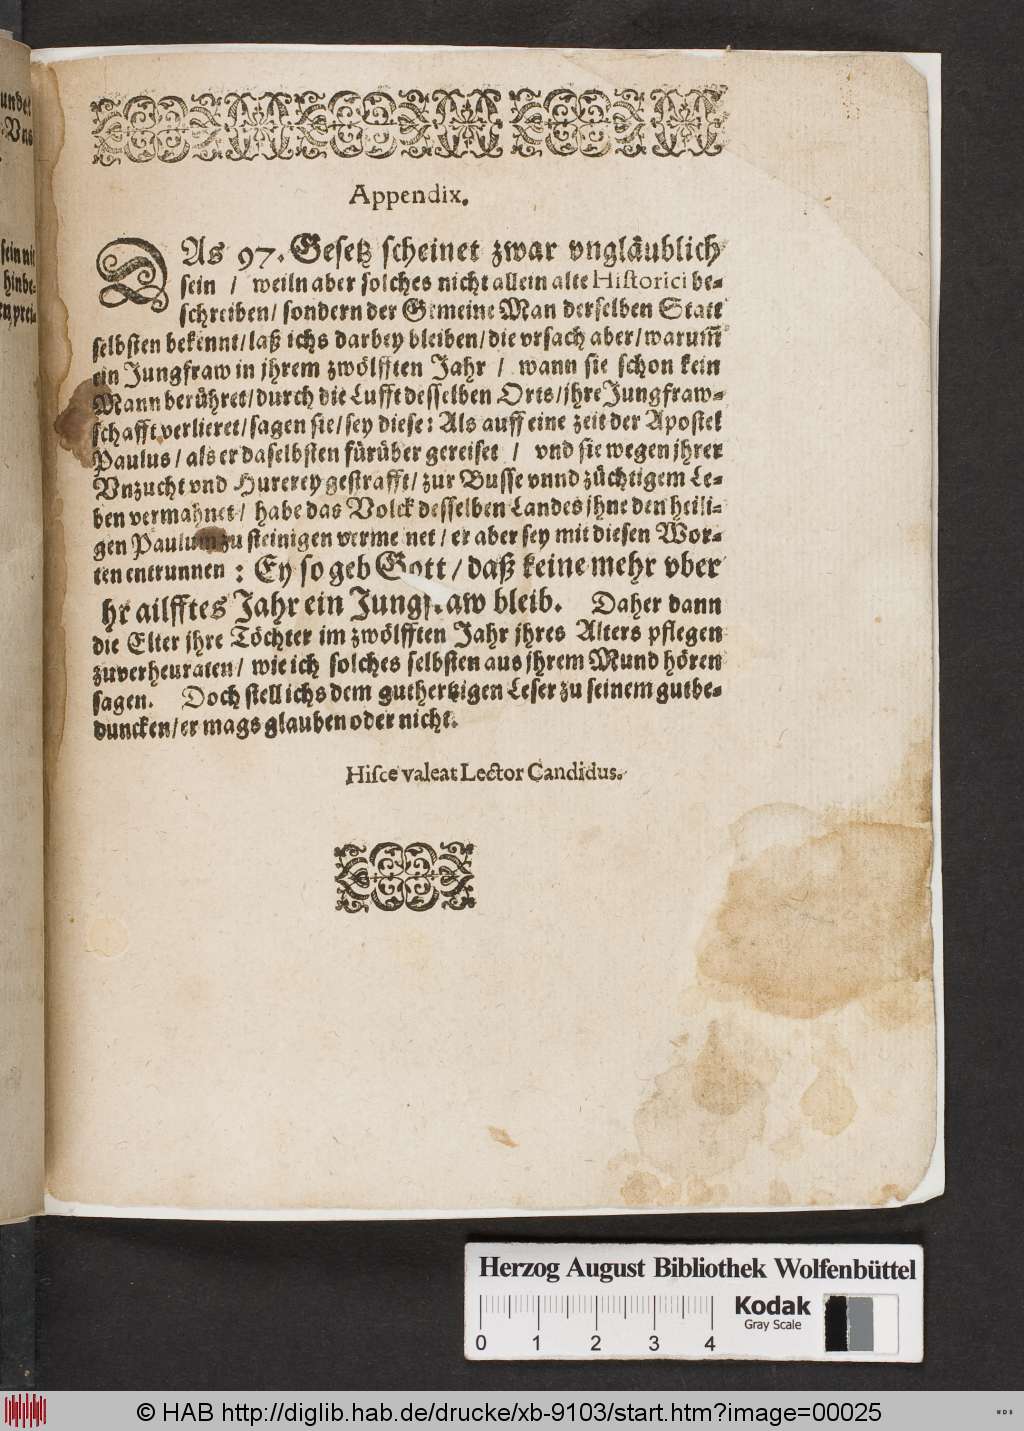 undet
Vns
sein mit
hinbe-
Appendix.
DAs 97. Gesetz scheinet zwar vngläublich
sein / weiln aber solches nicht allein alte Historici be-
schreiben / sondern der Gemeine Man derselben Statt
selbsten bekennt / laß ichs darbey bleiben / die vrsach aber / warum̃
ein Jungfraw in jhrem zwölfften Jahr / wann sie schon kein
Mann berühret / durch die Lufft desselben Orts / jhre Jungfraw-
schafft verlieret / sagen sie / sey diese: Als auff eine zeit der Apostel
Paulus / als er daselbsten fürüber gereiset / vnd sie wegen jhrer
Vnzucht vnd Hurerey gestrafft / zur Busse vnnd züchtigem Le-
ben vermahnet / habe das Volck desselben Landes jhne den heili-
gen Paulum zu steinigen verme net / er aber sey mit diesen Wor-
ten entrunnen : Ey so geb Gott / daß keine mehr vber
hr ailfftes Jahr ein Jungfraw bleib. Daher dann
die Elter jhre Töchter im zwölfften Jahr jhres Alters pflegen
zuverheuraten / wie ich solches selbsten aus jhrem Mund hören
sagen. Doch stell ichs dem gutherzigen Leser zu seinem gutbe-
duncken / er mags glauben oder nicht.
Hisce valeat Lector Candidus.
Herzog August Bibliothek Wolfenbüttel
Kodak
Gray Scale
0 1 2 3 4
© HAB http://diglib.hab.de/drucke/xb-9103/start.htm?image=00025